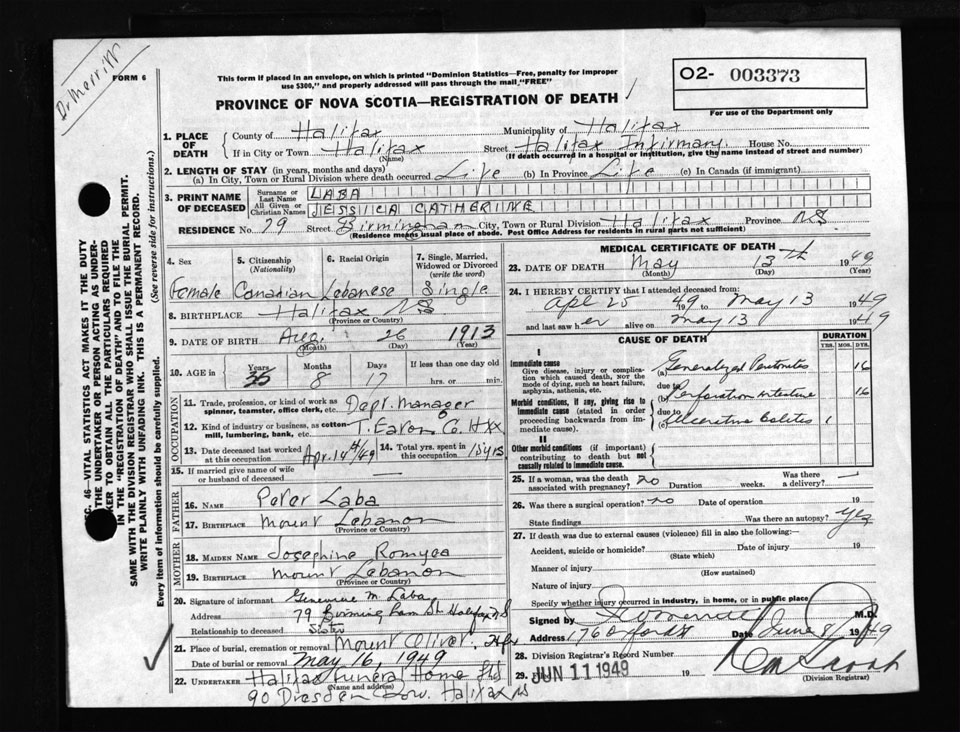 Dr Merritt
FORM 6
This form if placed in an envelope, on which is printed "Dominion Statistics—Free, penalty for improper
use $300," and properly addressed will pass through the mail "FREE"
O2- 003373
For use of the Department only
PROVINCE OF NOVA SCOTIA—REGISTRATION OF DEATH
1. PLACE OF DEATH
County of Halifax Municipality of Halifax
If in City or Town Halifax Street Halifax Infirmary House No.
(Name) (If death occurred in a hospital or institution, give the name instead of street and number)
2. LENGTH OF STAY (in years, months and days)
(a) In City, Town or Rural Division where death occurred Life (b) In Province Life (c) In Canada (if immigrant)
3. PRINT NAME OF DECEASED
Surname or Last Name LABA
All Given or Christian Names JESSICA CATHERINE
RESIDENCE No. 79 Street Birmingham City, Town or Rural Division Halifax Province NS
(Residence means usual place of abode. Post Office Address for residents in rural parts not sufficient)
4. Sex 5. Citizenship (Nationality) 6. Racial Origin 7. Single, Married, Widowed or Divorced (write the word)
Female Canadian Lebanese Single
8. BIRTHPLACE Halifax NS
(Province or Country)
9. DATE OF BIRTH Aug. 26 1913
(Month) (Day) (Year)
10. AGE in Years Months Days If less than one day old
35 8 17 hrs. or min.
OCCUPATION
11. Trade, profession, or kind of work as spinner, teamster, office clerk, etc. Dept. Manager
12. Kind of industry or business, as cotton-mill, lumbering, bank, etc. T. Eaton Co. Hfx
13. Date deceased last worked at this occupation Apr. 14th/49 14. Total yrs. spent in this occupation 15 yrs
15. If married give name of wife or husband of deceased
FATHER
16. Name Peter Laba
17. Birthplace Mount Lebanon
(Province or Country)
MOTHER
18. Maiden Name Josephine
19. Birthplace Mount Lebanon
(Province or Country)
20. Signature of informant Genevieve M. Laba
Address 79 Birmingham St. Halifax NS
Relationship to deceased Sister
21. Place of burial, cremation or removal Mount Olivet. Hfx
Date of burial or removal May 16, 1949
22. UNDERTAKER Halifax Funeral Home
(Name and address)
90 Dresden Row. Halifax NS
MEDICAL CERTIFICATE OF DEATH
23. DATE OF DEATH May 13th 1949
(Month) (Day) (Year)
24. I HEREBY CERTIFY that I attended deceased from:
Apl 25 1949 to May 13 1949
and last saw her alive on May 13 1949
CAUSE OF DEATH DURATION
YRS. MOS. DYS.
I
Immediate cause
Give disease, injury or complication which caused death, not the mode of dying, such as heart failure, asphyxia, asthenia, etc.
(a) Generalized Peritonitis 16
due to
Morbid conditions, if any, giving rise to immediate cause (stated in order proceeding backwards from immediate cause).
(b) Perforation intestine 16
due to
(c) Ulcerative Colitis 1
II
Other morbid conditions (if important) contributing to death but not causally related to immediate cause.
25. If a woman, was the death associated with pregnancy? no Duration weeks. Was there a delivery?
26. Was there a surgical operation? no Date of operation 19
State findings Was there an autopsy? yes
27. If death was due to external causes (violence) fill in also the following:
Accident, suicide or homicide? Date of injury 19
(State which)
Manner of injury
(How sustained)
Nature of injury
Specify whether injury occurred in industry, in home, or in public place
Signed by Merritt M.D.
Address 176 Oxford St Date June 8 1949
28. Division Registrar's Record Number
29. JUN 11 1949 19
(Division Registrar)
SEC. 46—VITAL STATISTICS ACT MAKES IT THE DUTY
OF THE UNDERTAKER OR PERSON ACTING AS UNDER-
TAKER TO OBTAIN ALL THE PARTICULARS REQUIRED
IN THE "REGISTRATION OF DEATH" AND TO FILE THE
SAME WITH THE DIVISION REGISTRAR WHO SHALL ISSUE THE BURIAL PERMIT.
WRITE PLAINLY WITH UNFADING INK. THIS IS A PERMANENT RECORD.
Every item of information should be carefully supplied. (See reverse side for instructions.)